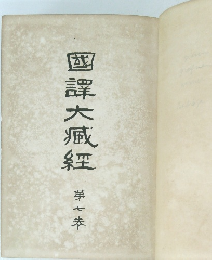 國譯大藏經
第七卷